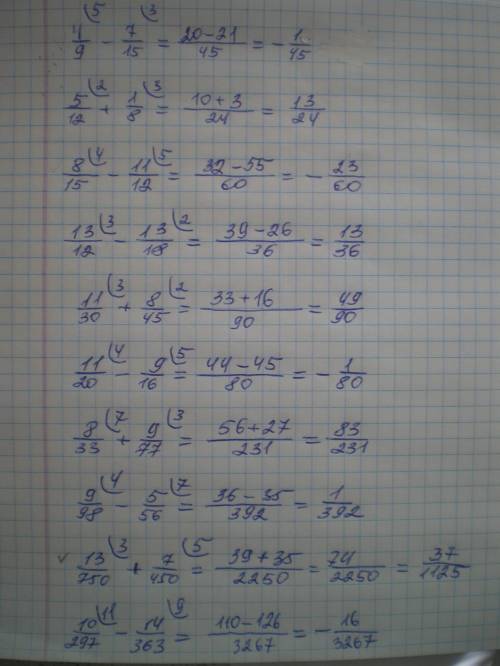 4/9 ⁵ - 7/15 ³ = (20-21)/45 = -1/45
5/12 ² + 1/8 ³ = (10+3)/24 = 13/24
8/15 ⁴ - 11/12 ⁵ = (32-55)/60 = -23/60
13/12 ³ - 13/18 ² = (39-26)/36 = 13/36
11/30 ³ + 8/45 ² = (33+16)/90 = 49/90
11/20 ⁴ - 9/16 ⁵ = (44-45)/80 = -1/80
8/33 ⁷ + 9/77 ³ = (56+27)/231 = 83/231
9/98 ⁴ - 5/56 ⁷ = (36-35)/392 = 1/392
13/750 ³ + 7/450 ⁵ = (39+35)/2250 = 74/2250 = 37/1125
10/297 ¹¹ - 14/363 ⁹ = (110-126)/3267 = -16/3267